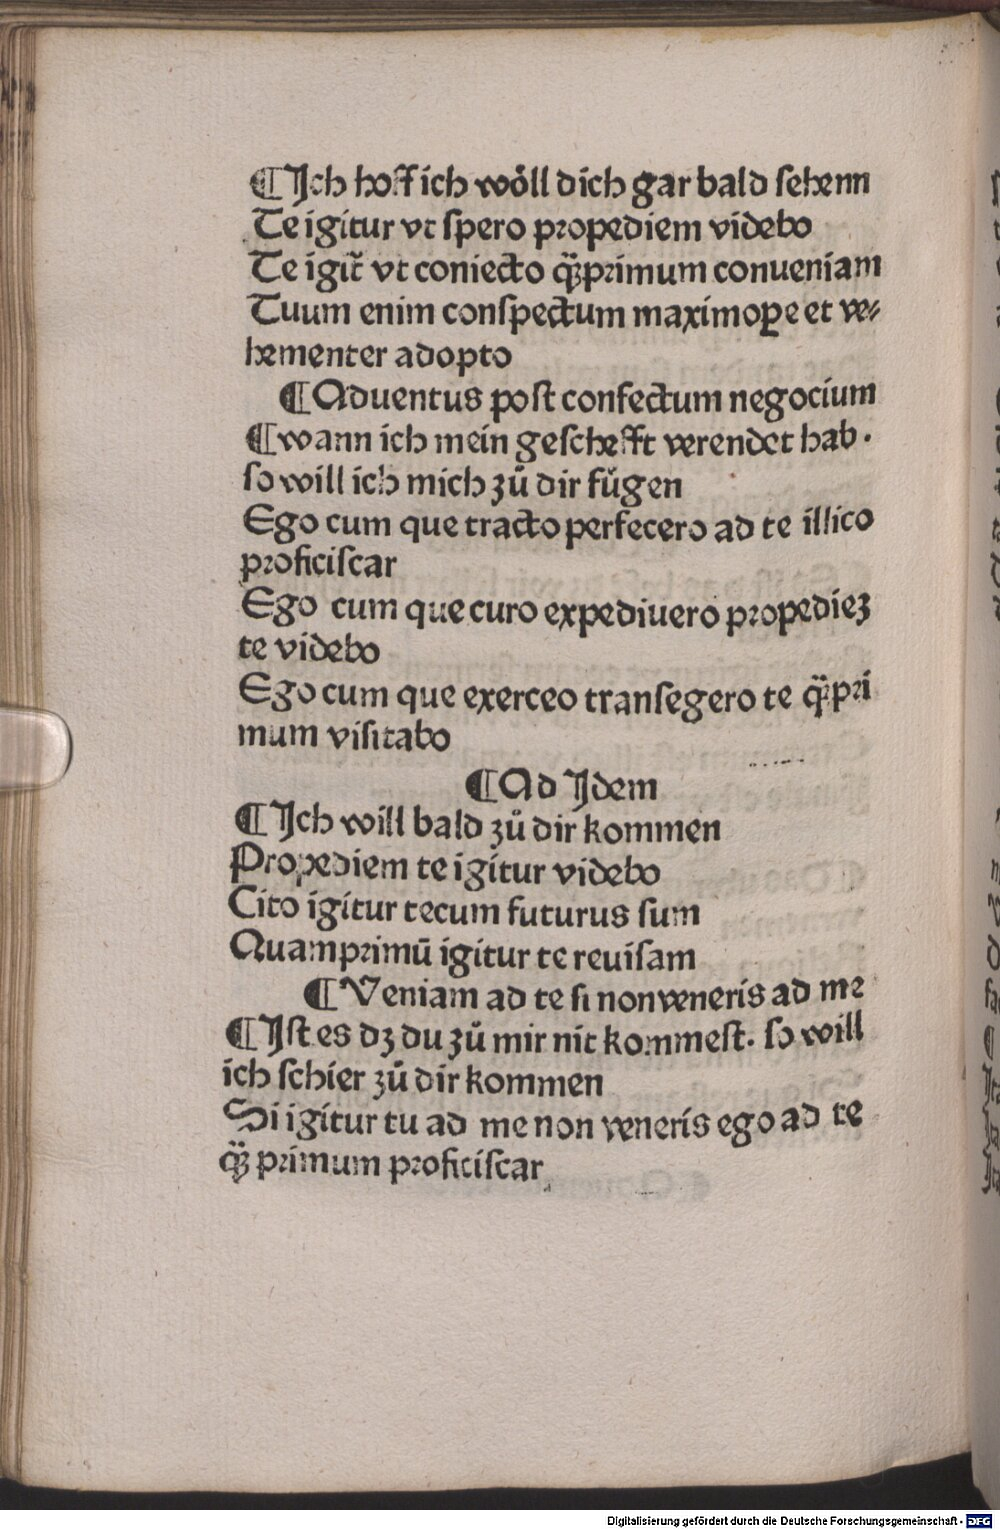 ¶Jch hoff ich wöll dich gar bald sehenn
Te igitur vt spero propediem videbo
Te igit̃ vt coniecto qͣꝫprimum conueniam
Tuum enim conspectum maximoꝑe et ve⸗
hementer adopto
¶Aduentus post confectum negocium
¶wann ich mein geschefft verendet hab.
so will ich mich zů dir fůgen
Ego cum que tracto perfecero ad te illico
proficiscar
Ego cum que curo expediuero propedieꝫ
te videbo
Ego cum que exerceo transegero te qͣꝫpri
mum visitabo
¶Ad Jdem
¶Jch will bald zů dir kommen
Propediem te igitur videbo
Cito igitur tecum futurus sum
Quamprimū igitur te reuisam
¶Veniam ad te si non veneris ad me
¶Jst es dꝫ du zů mir nit kommest. so will
ich schier zů dir kommen
Si igitur tu ad me non veneris ego ad te
qͣꝫ primum proficiscar
Digitalisierung gefördert durch die Deutsche Forschungsgemeinschaft - DFG